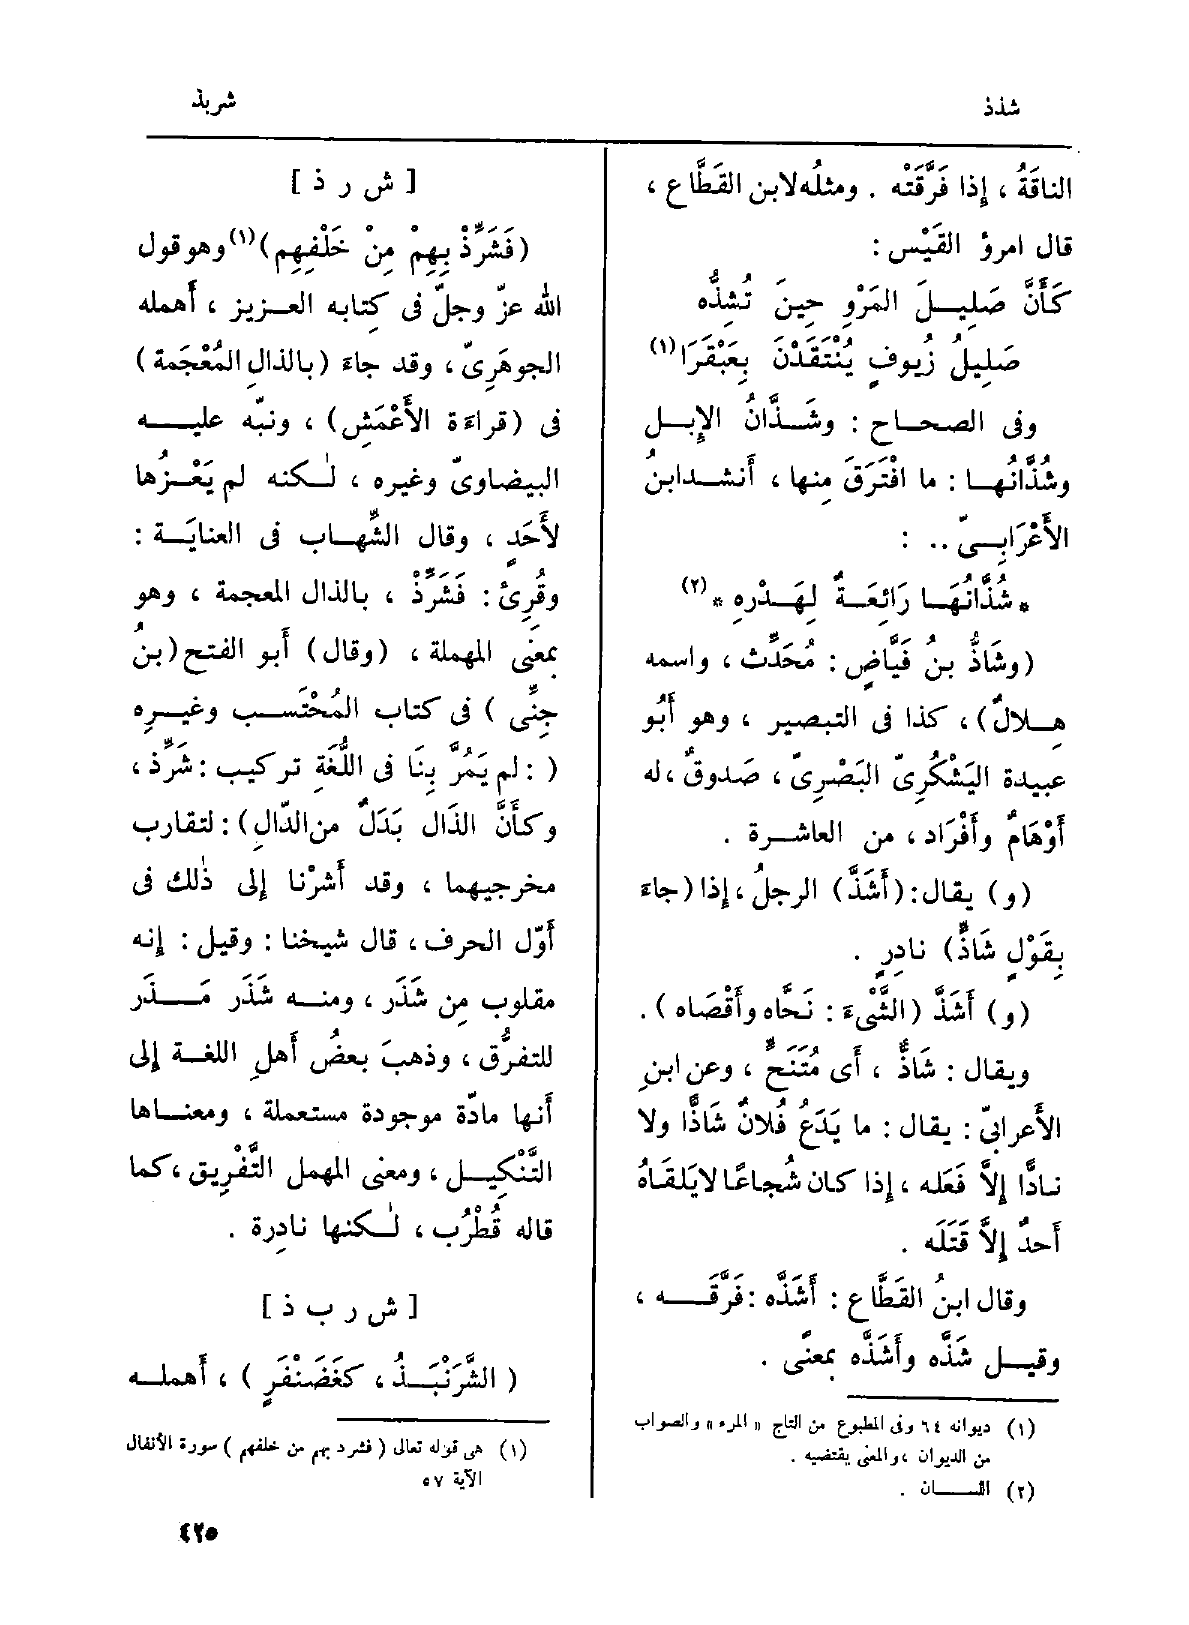 شذذ
شربذ
الناقَةُ ، إِذا فَرَّقَتْه . ومثلُه لابن القَطَّاع ،
قال امرؤ القَيْس :
كَأَنَّ صَلِيـلَ المَرْوِ حِينَ تُشِذُّه
صَلِيلُ زُيوفٍ يُنْتَقَدْنَ بِعَبْقَرَا (١)
وفى الصحـاح : وشَـذَّانُ الإِبـلِ
وشُذَّانُهـا : ما افْتَرَقَ مِنها ، أَنشـد ابنُ
الأَعْرَابـىّ .. :
* شُذَّانُهَـا رَائِعَـةٌ لِهَـدْرِه * (٢)
(وشَاذُّ بنُ فَيَّاضٍ : مُحَدِّث ، واسمه
هِـلالٌ) ، كذا فى التبصير ، وهو أَبُو
عبيدة اليَشْكُرِىّ البَصْرِىّ ، صَدوقٌ ، له
أَوْهَامٌ وأَفْرَاد ، من العاشـرة .
(و) يقال : (أَشَذَّ) الرجلُ ، إِذا (جاءَ
بِقَوْلٍ شَاذٍّ) نادِرٍ .
(و) أَشَذَّ (الشَّىْءَ : نَحَّاه وأَقْصَاه) .
ويقال : شَاذٌّ ، أَى مُتَنَحٍّ ، وعن ابنِ
الأَعرابىّ : يقال : ما يَدَعُ فُلانٌ شَاذًّا ولا
نادًّا إِلاَّ فَعَله ، إِذا كان شُجاعًا لا يَلقاهُ
أَحدٌ إِلاَّ قَتَلَه .
وقال ابنُ القَطَّاع : أَشَذَّه : فَرَّقَـه ،
وقيـل شَذَّه وأَشَذَّه بمعنًى .
(١) ديوانه ٦٤ وفى المطبوع من التاج «المرء» والصواب
من الديوان ، والمعنى يقتضيه .
(٢) اللسـان .
[ ش ر ذ ]
(فَشَرِّذْ بِهِمْ مِنْ خَلْفِهِم) (١) وهو قول
الله عزّ وجلّ فى كِتابه العـزيز ، أَهمله
الجوهَرِىّ ، وقد جاءَ (بالذال المُعْجَمة)
فى (قراءَة الأَعْمَشِ) ، ونبّه عليـه
البيضاوىّ وغيره ، لٰـكنه لم يَعْـزُها
لأَحَدٍ ، وقال الشِّهـاب فى العنايَـة :
وقُرِئَ : فَشَرِّذْ ، بالذال المعجمة ، وهو
بمعنى المهملة ، (وقال) أَبو الفتح (بنُ
جِنِّى) فى كتاب المُحْتَسب وغيـره
( : لم يَمُرَّ بِنَا فى اللُّغَةِ تركيب : شَرَّذ ،
وكأَنَّ الذَال بَدَلٌ من الدّالِ) : لتقارب
مخرجيهما ، وقد أَشرْنا إِلى ذٰلك فى
أَوّل الحرف ، قال شيخنا : وقيل : إِنه
مقلوب مِن شَذَر ، ومنـه شَذَر مَـذَر
للتفرُّق ، وذهبَ بعضُ أَهلِ اللغـة إِلى
أَنها مادّة موجودة مستعملة ، ومعنـاها
التَّنْكِيـل ، ومعنى المهمل التَّفْرِيق ، كما
قاله قُطْرُب ، لٰـكنها نادِرة .
[ ش ر ب ذ ]
( الشَّرَنْبَـذُ ، كغَضَنْفَرٍ ) ، أَهملـه
(١) هى قوله تعالى ( فشرد بهم من خلفهم ) سورة الأنفال
الآية ٥٧
٤٢٥